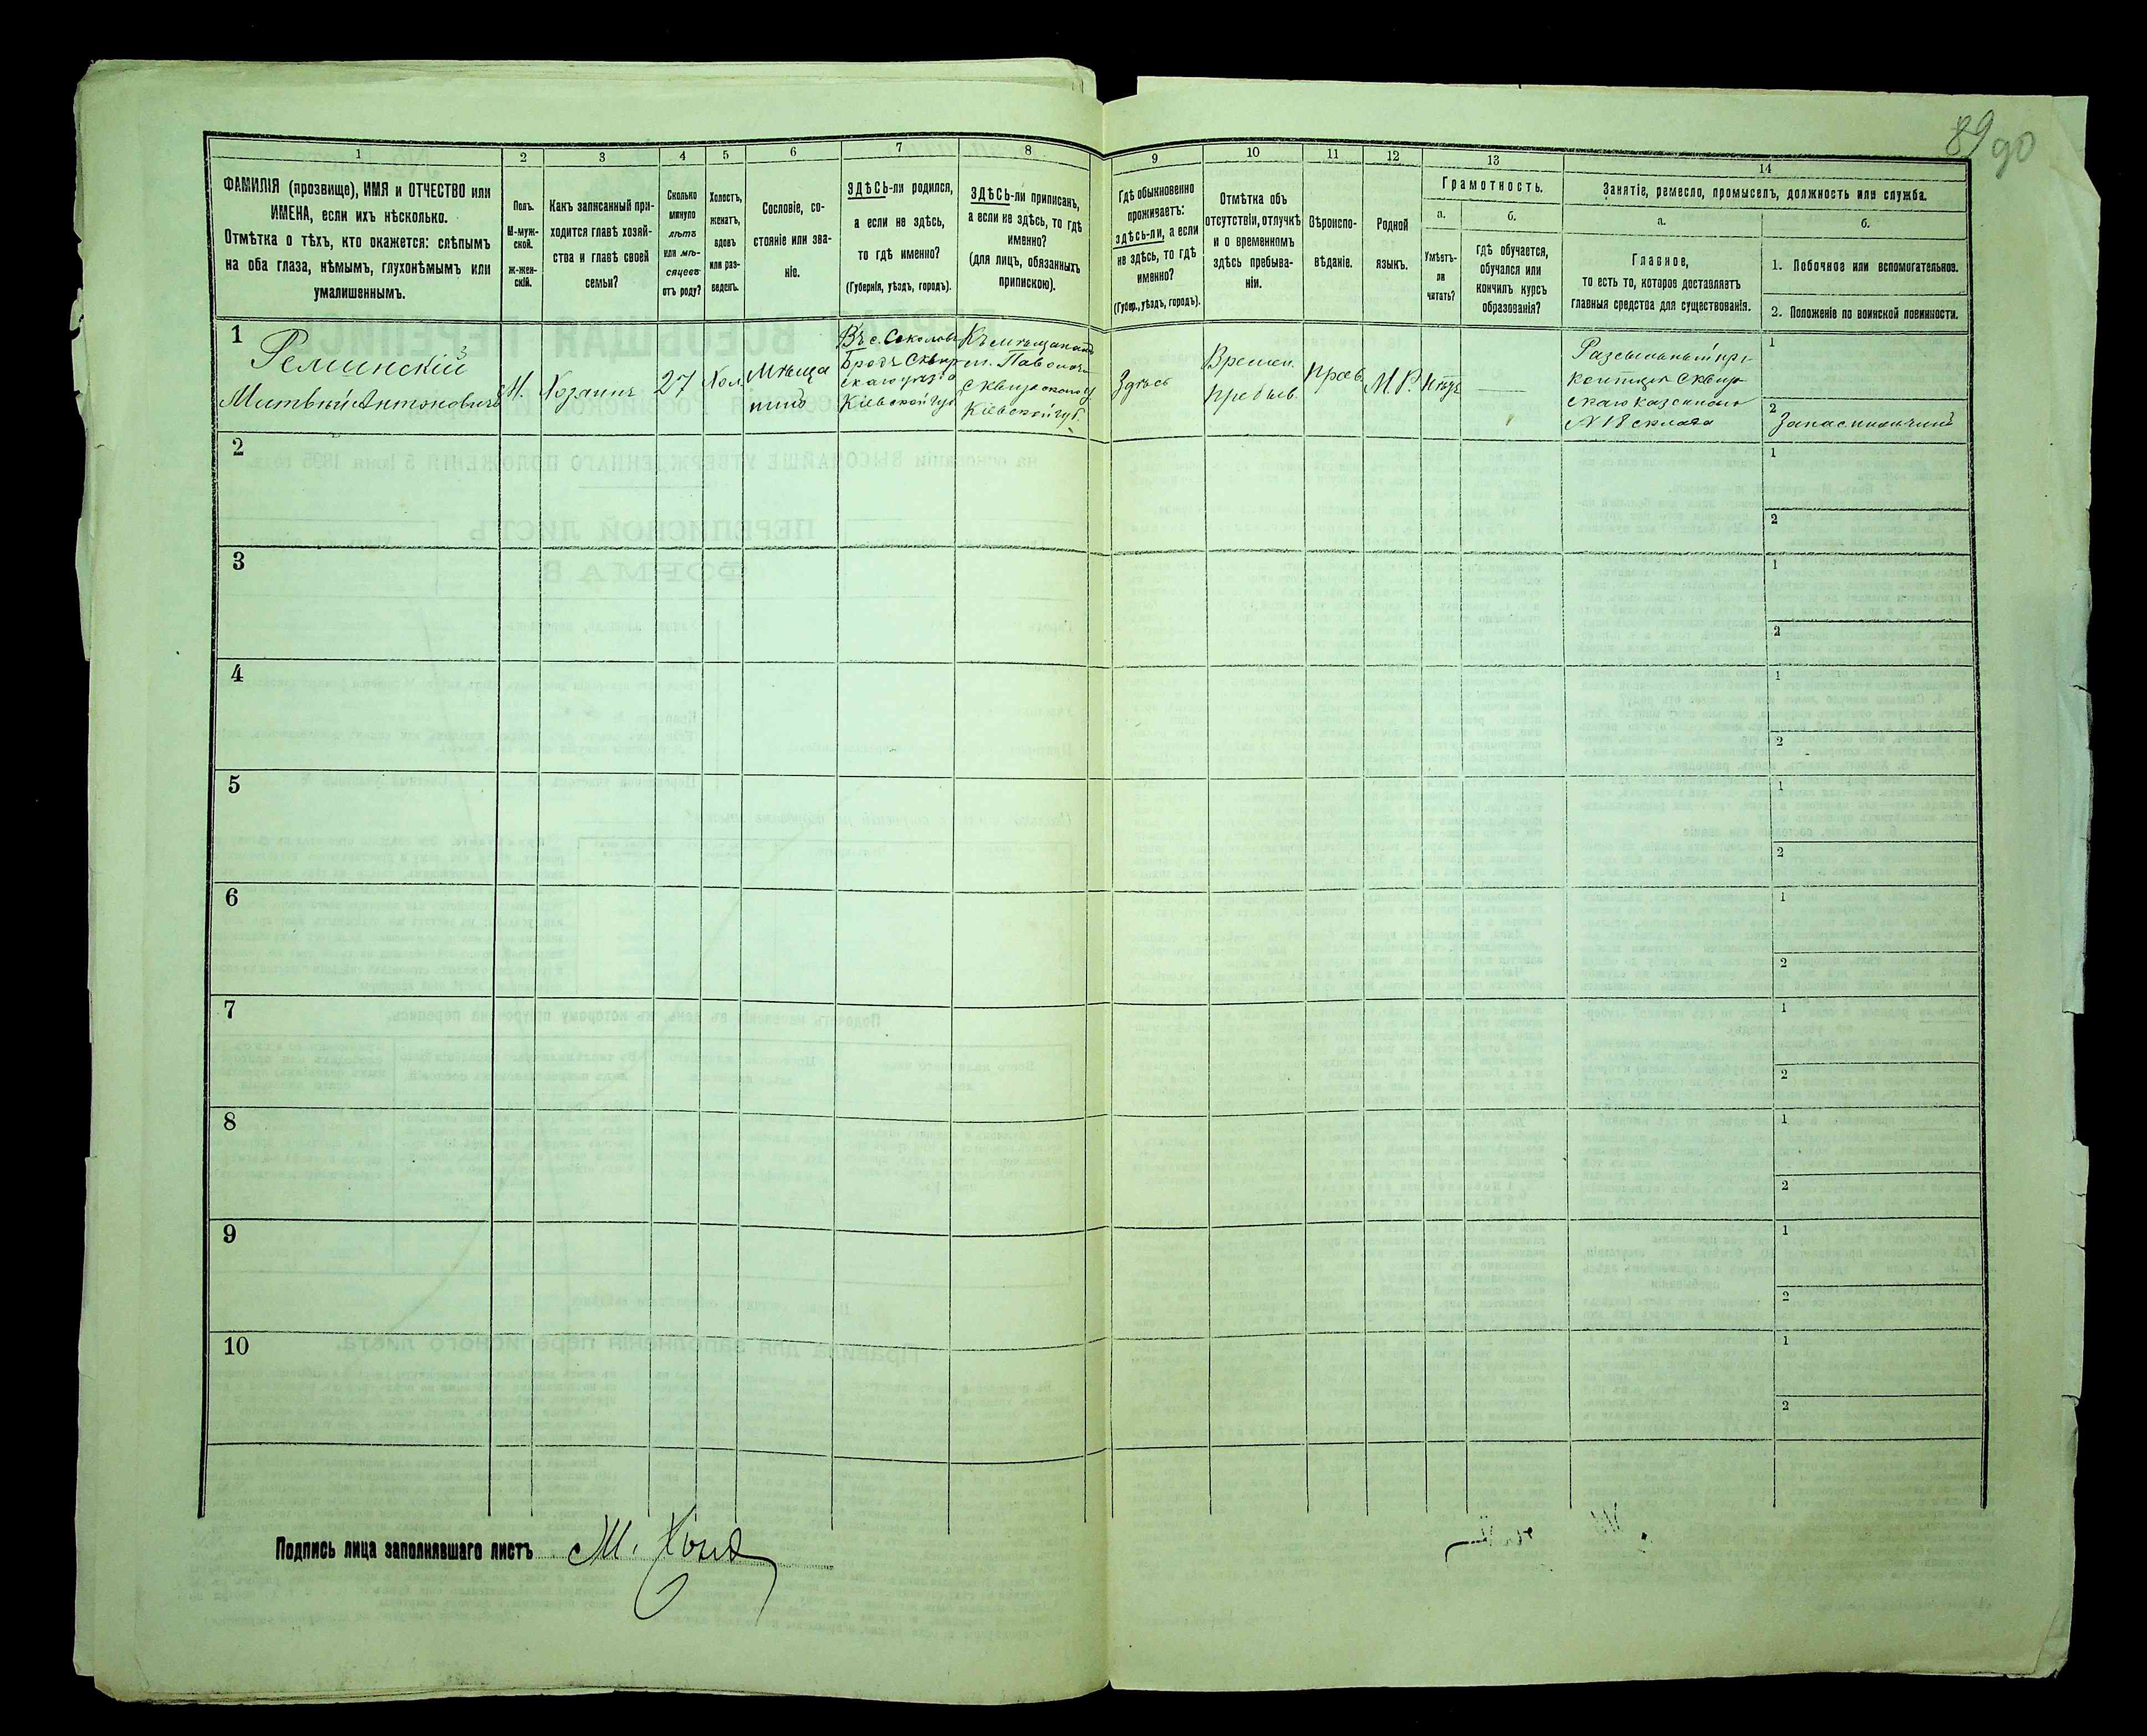 89 90
1
2
3
4
5
6
7
8
9
10
11
12
13
14
ФАМИЛІЯ (прозвище), ИМЯ и ОТЧЕСТВО или
ИМЕНА, если ихъ нѣсколько.
Отмѣтка о тѣхъ, кто окажется: слѣпымъ
на оба глаза, нѣмымъ, глухонѣмымъ или
умалишеннымъ.
Полъ.
М-муж-
ской.
Ж-жен-
скій.
Какъ записанный при-
ходится главѣ хозяй-
ства и главѣ своей
семьи?
Сколько
минуло
лѣтъ
или мѣ-
сяцевъ
отъ роду?
Холостъ,
женатъ,
вдовъ
или раз-
веденъ.
Сословіе, со-
стояніе или зва-
ніе.
ЗДѢСЬ-ли родился,
а если не здѣсь,
то гдѣ именно?
(Губернія, уѣздъ, городъ).
ЗДѢСЬ-ли приписанъ,
а если не здѣсь, то гдѣ
именно?
(для лицъ, обязанныхъ
припискою).
Гдѣ обыкновенно
проживаетъ:
здѣсь-ли, а если
не здѣсь, то гдѣ
именно?
(Губер., уѣздъ, городъ).
Отмѣтка объ
отсутствіи, отлучкѣ
и о временномъ
здѣсь пребыва-
ніи.
Вѣроиспо-
вѣданіе.
Родной
языкъ.
Грамотность.
а.
Умѣетъ-
ли
читать?
б.
Гдѣ обучается,
обучался или
кончилъ курсъ
образованія?
Занятіе, ремесло, промыселъ, должность или служба.
а.
Главное,
то есть то, которое доставляетъ
главныя средства для существованія.
б.
1. Побочное или вспомогательное.
2. Положеніе по воинской повинности.
1
Реминскій
Матвѣй Антоновичъ
М.
Хозяинъ
27
Хол.
Мѣща
нинъ
Въ с. Соколовъ
Бродъ Сквир-
скаго уѣзда
Кіевской губ.
Къ мѣщанамъ
м. Паволочи
Сквирскаго у
Кіевской губ.
Здѣсь
Времен.
пребыв.
Прав.
М. Р.
Нѣтъ
Разсыльный при
Сквир-
скаго казеннаго
№ 18 склада
1
2
Запасный чинъ
2
1
2
3
1
2
4
1
2
5
1
2
6
1
2
7
1
2
8
1
2
9
1
2
10
1
2
Подпись лица заполнявшаго листъ